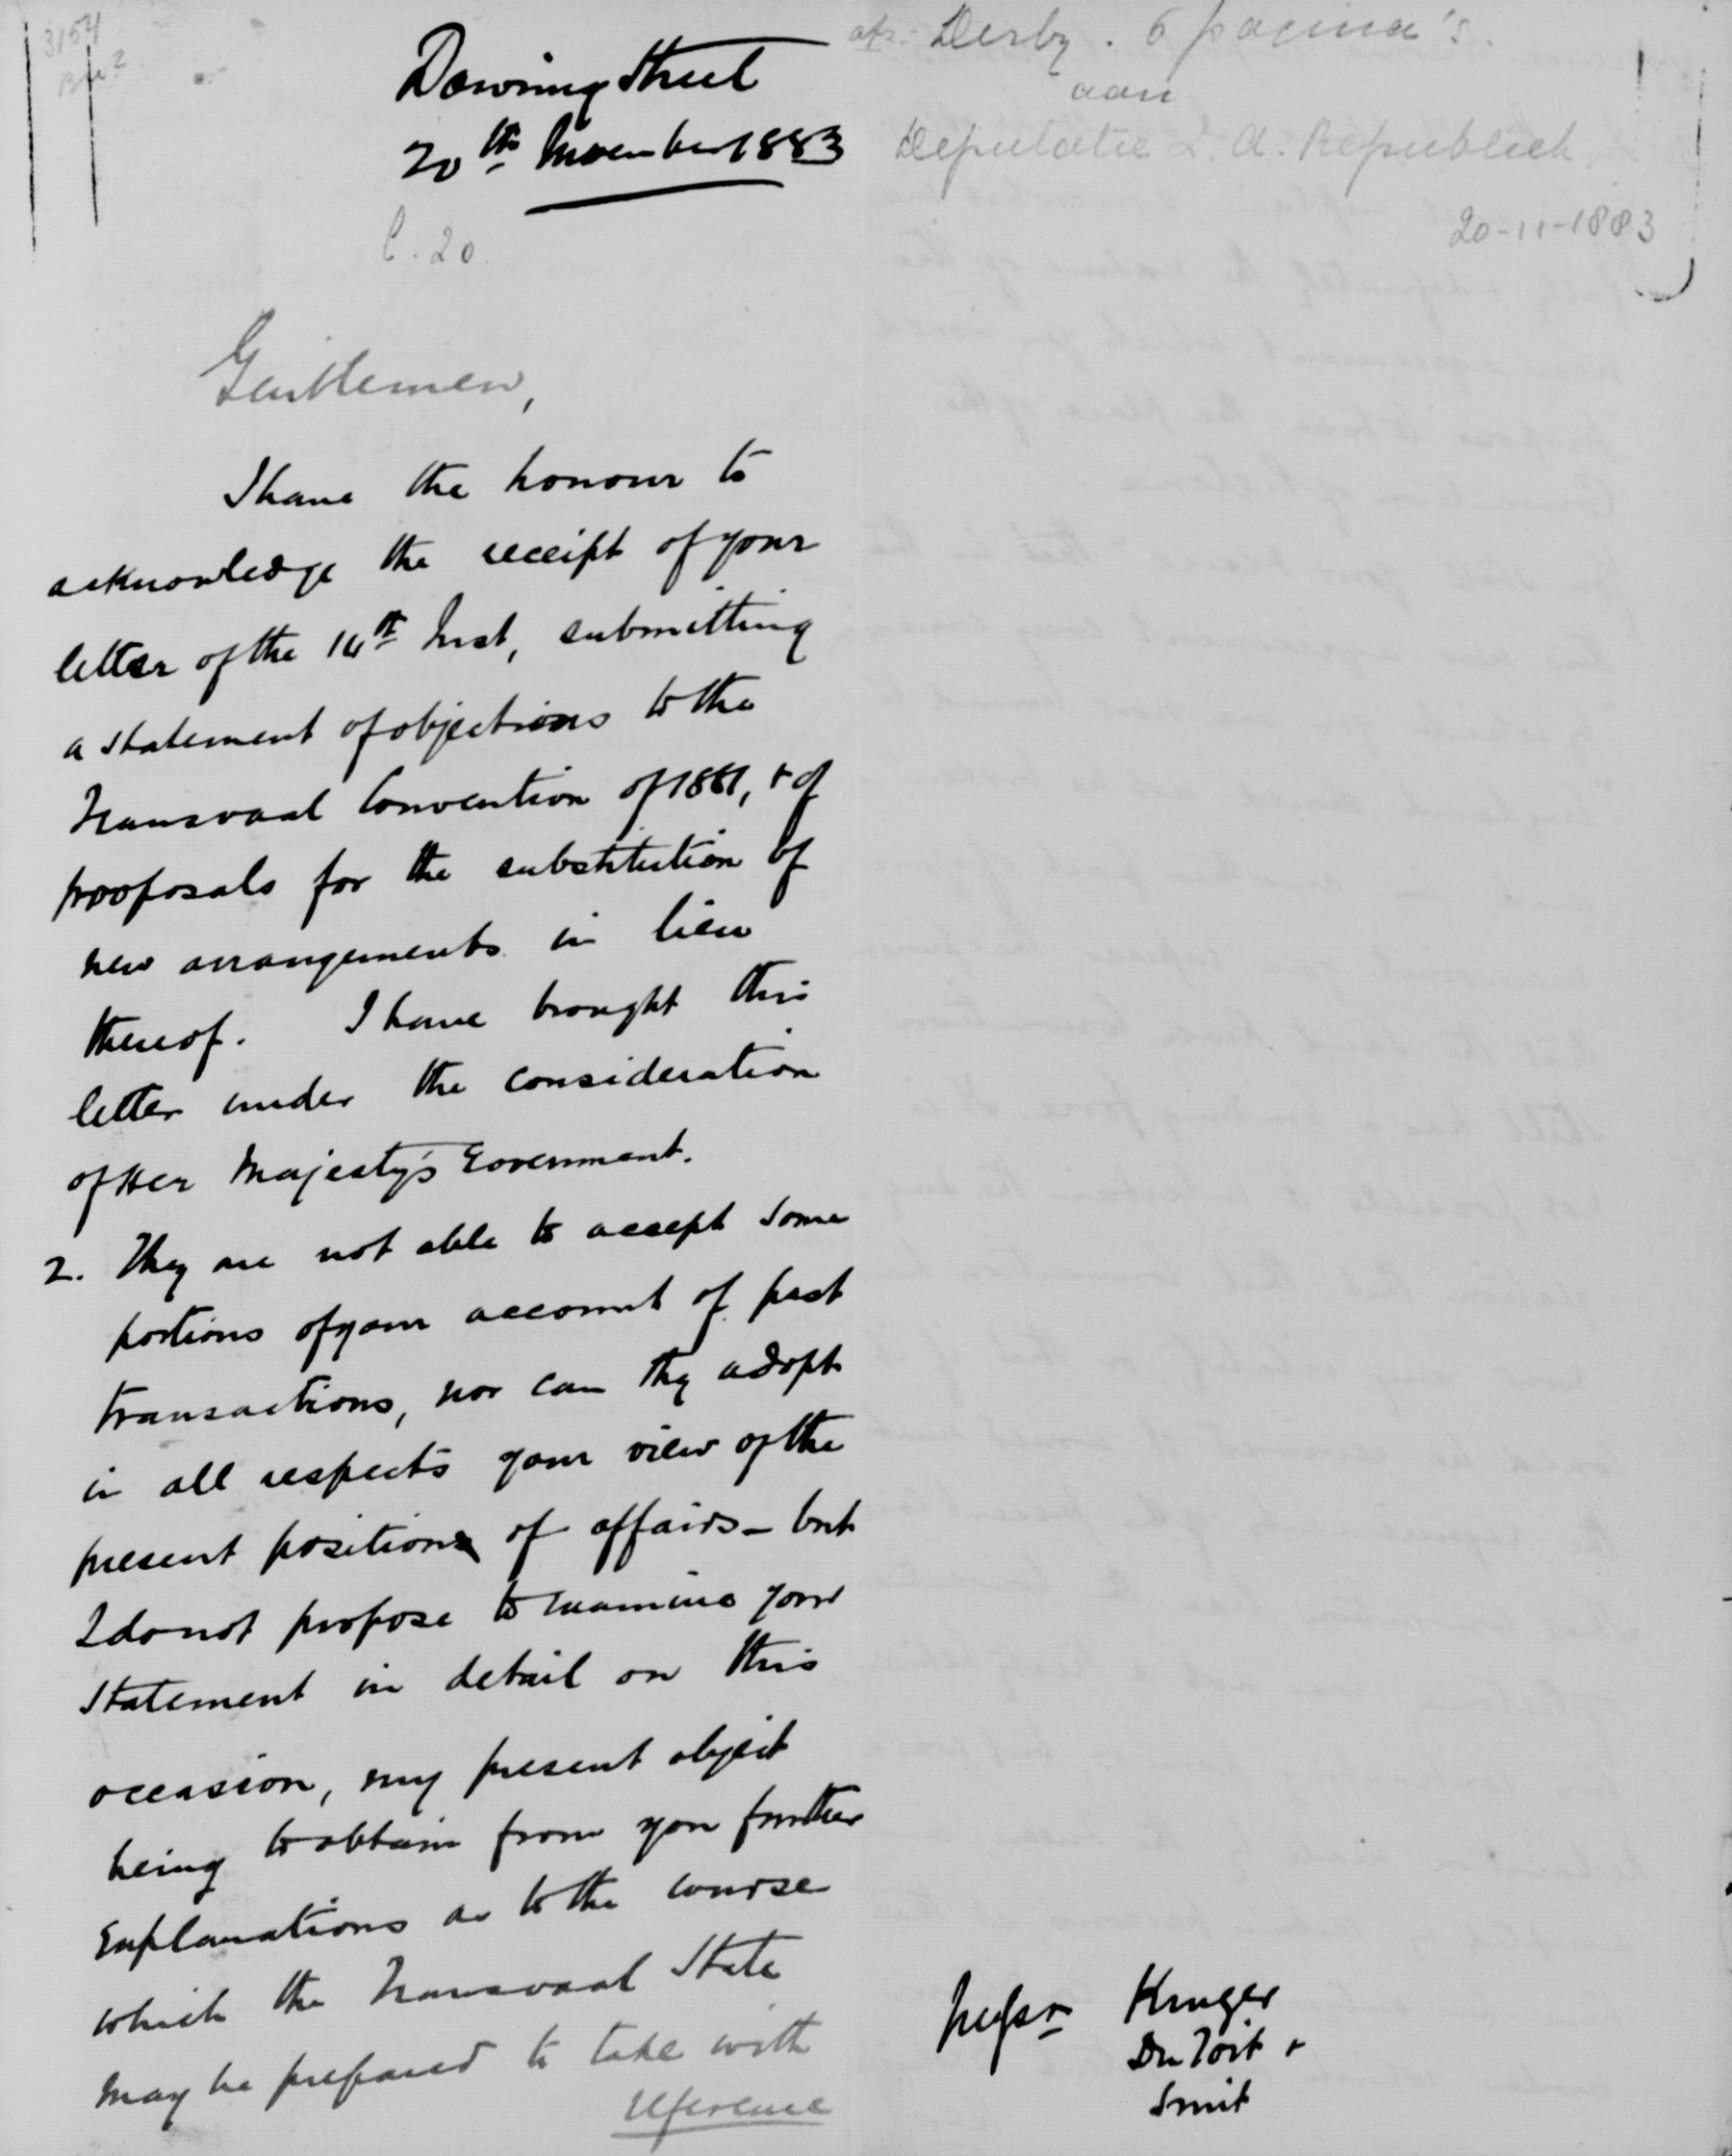 3154
Downing Street
20th November 1883
C. 20.
afz: Derby. 6 pagina's.
aan
Deputatie Z. A. Republiek
20-11-1883
Gentlemen,
I have the honour to
acknowledge the receipt of your
letter of the 14th Inst, submitting
a statement of objections to the
Transvaal Convention of 1881, & of
proposals for the substitution of
new arrangements in lieu
thereof. I have brought this
letter under the consideration
of Her Majesty's Government.
2. They are not able to accept some
portions of your account of past
transactions, nor can they adopt
in all respects your view of the
present position of affairs - but
I do not propose to examine your
statement in detail on this
occasion, my present object
being to obtain from you further
explanations as to the course
which the Transvaal State
may be prepared to take with
reference
Messrs Kruger
Du Toit &
Smit